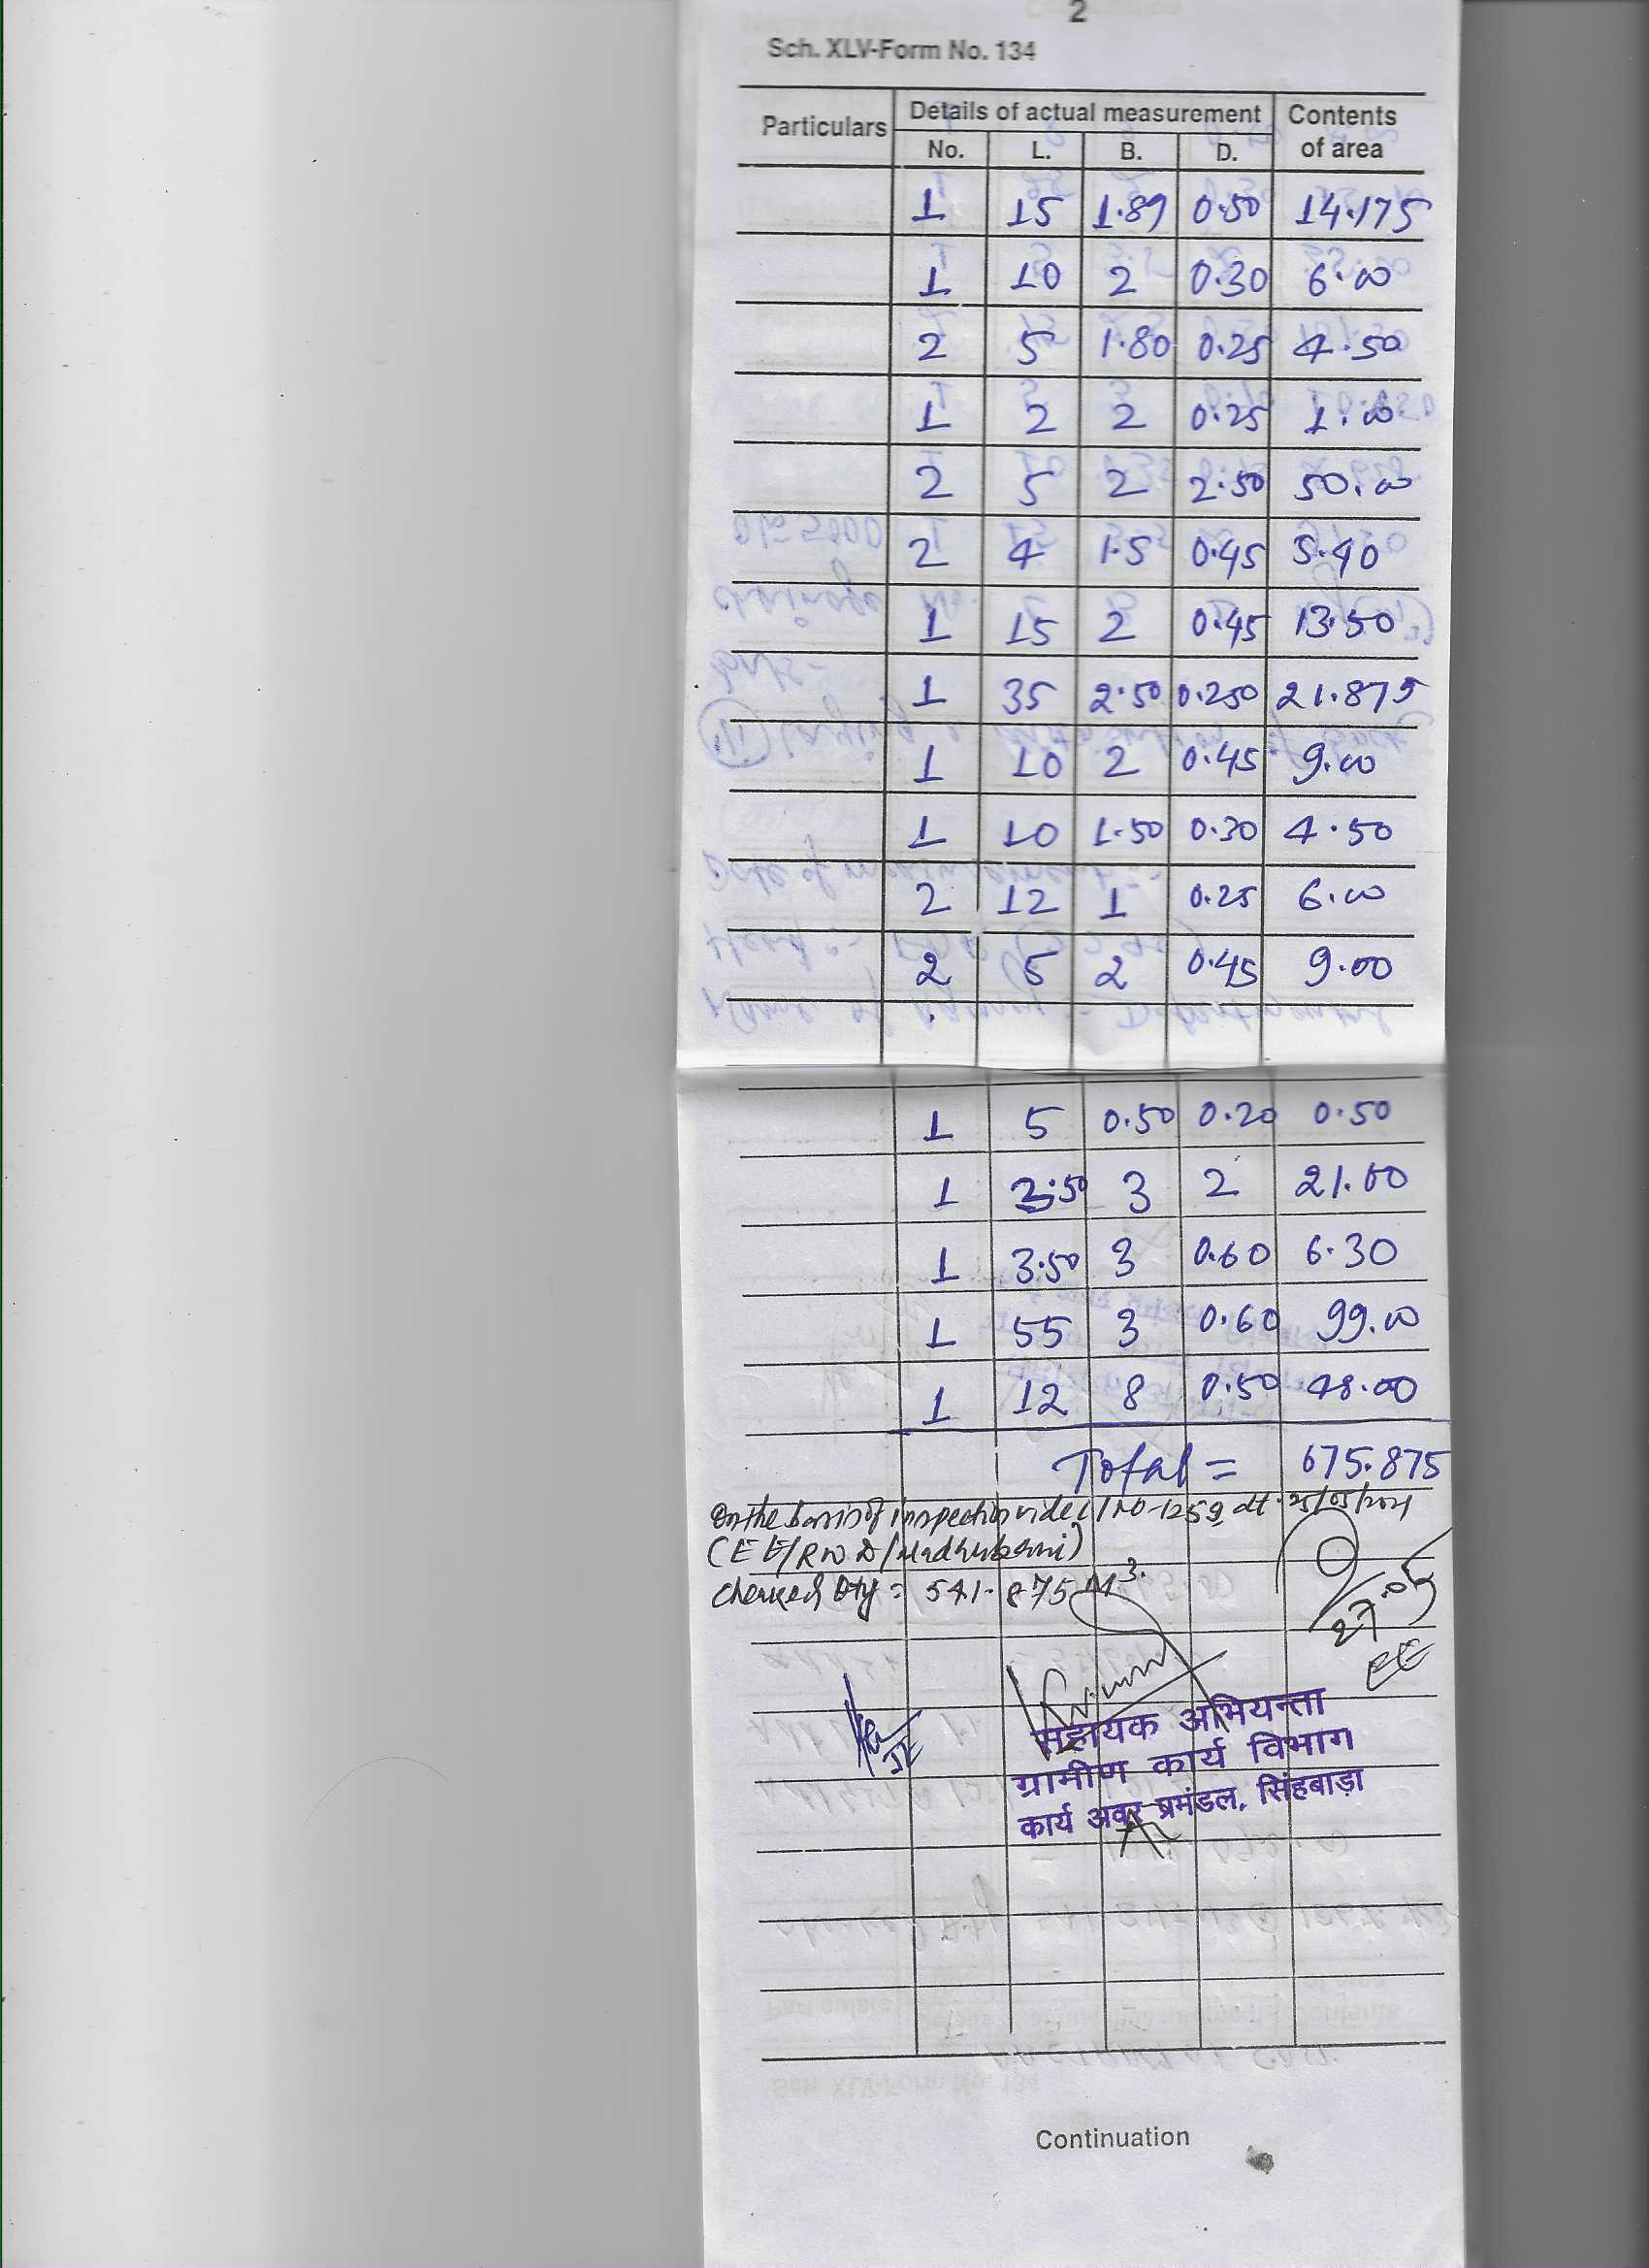 2
Sch. XLV-Form No. 134
Particulars Details of actual measurement Contents of area
No. L. B. D.
1 15 1.89 0.50 14.175
1 10 2 0.30 6.00
2 5 1.80 0.25 4.50
1 2 2 0.25 1.00
2 5 2 2.50 50.00
2 4 1.5 0.45 5.40
1 15 2 0.45 13.50
1 35 2.50 0.250 21.875
1 10 2 0.45 9.00
1 10 1.50 0.30 4.50
2 12 1 0.25 6.00
2 5 2 0.45 9.00
1 5 0.50 0.20 0.50
1 3.50 3 2 21.00
1 3.50 3 0.60 6.30
1 55 3 0.60 99.00
1 12 8 0.50 48.00
Total = 675.875
On the basis of inspection vide L/NO-1259 dt. 25/05/2021
(EE/RWD/Madhubani)
Checked Qty = 541.875 M3.
27.05
EE
JE
सहायक अभियन्ता
ग्रामीण कार्य विभाग
कार्य अवर प्रमंडल, सिंहबाड़ा
Continuation